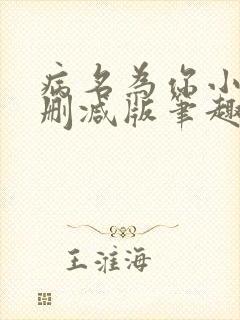 病名为你小
删减版笔趣
王淮海